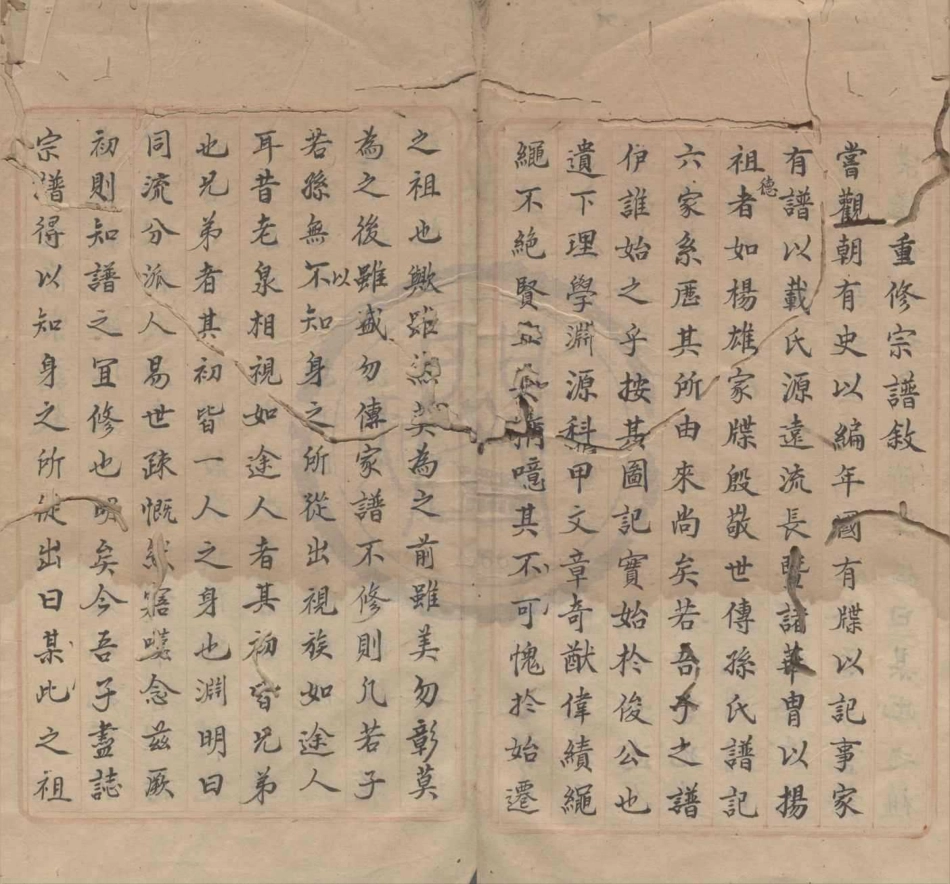 重修宗譜敘
嘗觀朝有史以編年國有牒以記事家
有譜以載氏源遠流長暨諸華胄以揚
祖德者如楊雄家牒殷敬世傳孫氏譜記
六家系歷其所由來尚矣若吾子之譜
伊誰始之乎按其圖記實始於俊公也
遺下理學淵源科甲文章奇猷偉績繩
繩不絶賢噫其不可愧於始遷
之祖也歟雖然莫為之前雖美勿彰莫
為之後雖盛勿傳家譜不修則凡若子
若孫無以不知身之所從出視族如途人
耳昔老泉相視如途人者其初皆兄弟
也兄弟者其初皆一人之身也淵明曰
同流分派人易世疎慨然寤嘆念茲厥
初則知譜之宜修也明矣今吾子盡誌
宗譜得以知身之所從出曰某此之祖